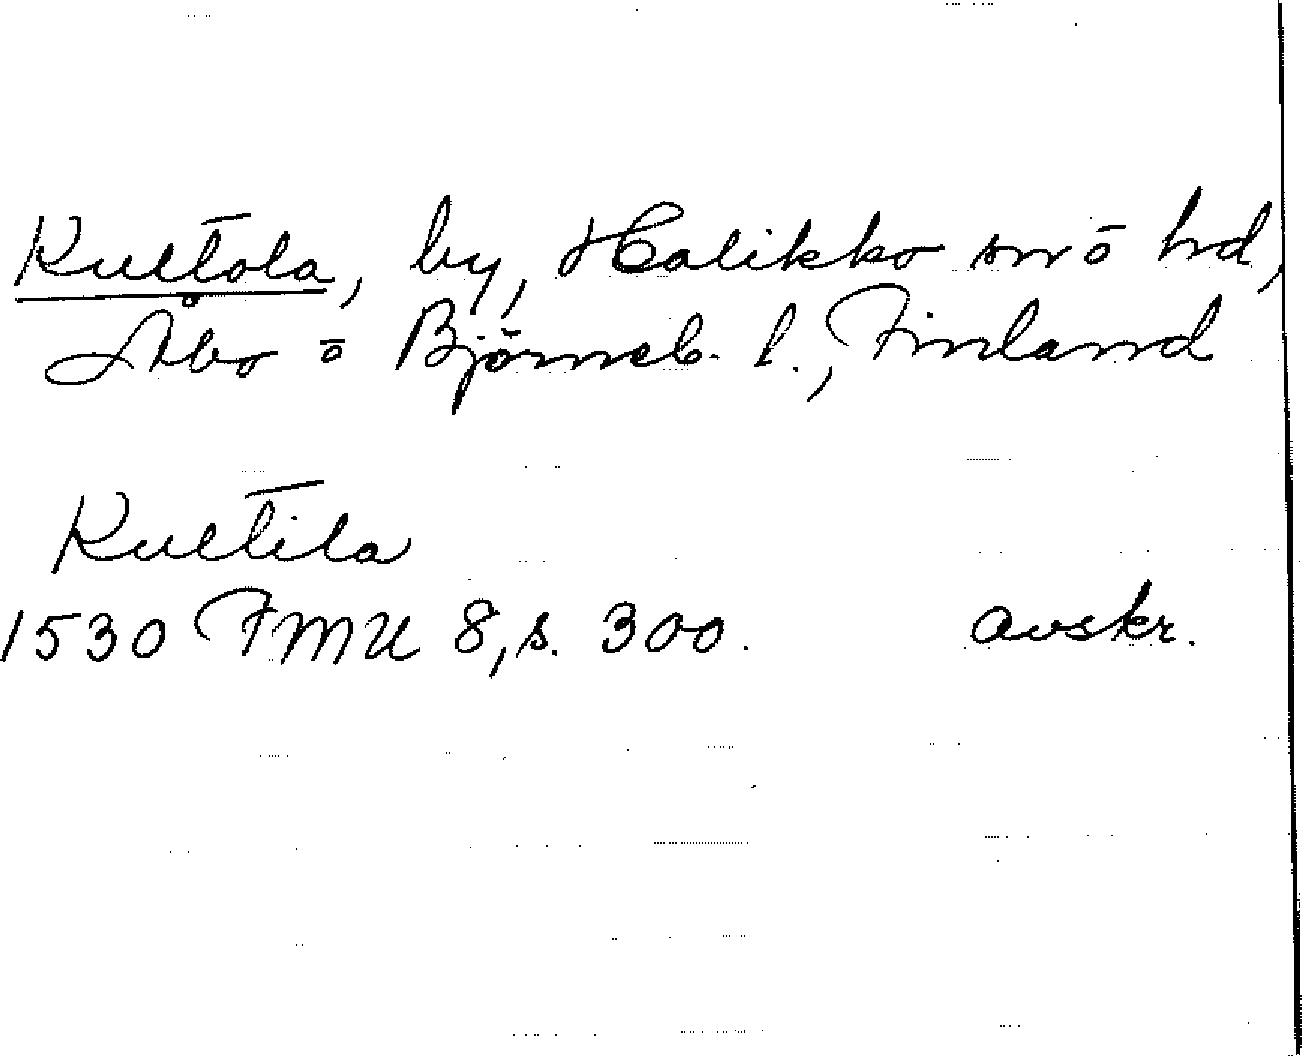 Kultola, by, Halikko sn o hd,
Åbo o Björneb. l., Finland
Kultila
1530 FMU 8, s. 300. avskr.